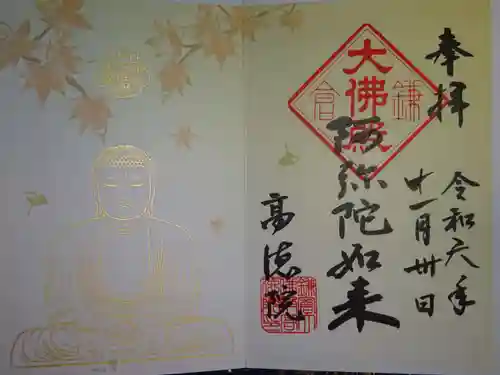 奉拝
令和元年
十一月卅日
大佛殿
鎌
倉
阿弥陀如来
高徳院